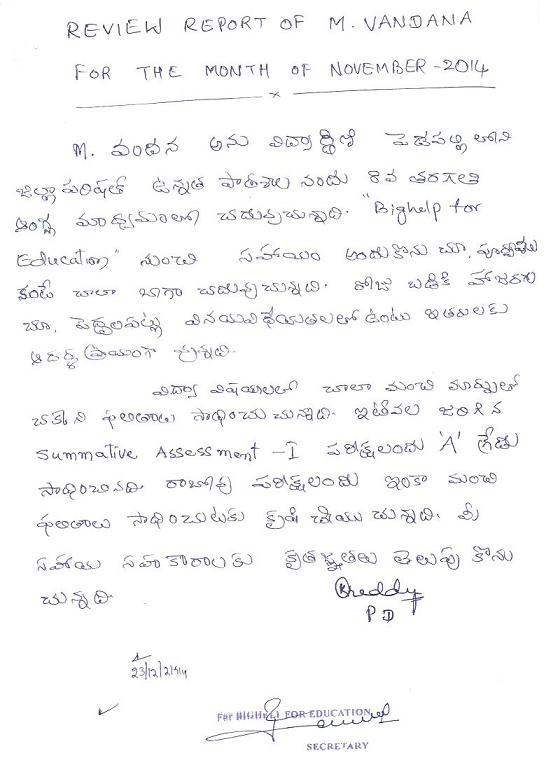 REVIEW REPORT OF M. VANDANA
FOR THE MONTH OF NOVEMBER -2014
M. వందన అను విద్యార్థిణి పెడపల్లి లోని
జిల్లా పరిషత్ ఉన్నత పాఠశాల నందు 8వ తరగతి
ఆంగ్ల మాధ్యమంలో చదువుచున్నది. "Bighelp for
Education" నుంచి సహాయం అందుకొను చూ,
కంటే చాలా బాగా చదువు చున్నది. రోజు బడికి హాజరగు
చూ, పెద్దలపట్ల వినయవిధేయతలతో ఉంటు ఇతరులకు
ఆదర్శ ప్రాయంగా వున్నది.
విద్యా విషయాలలో చాలా మంచి మార్కులతో
చక్కని ఫలితాలు సాధించు చున్నది. ఇటీవల జరిగిన
Summative Assessment -I పరీక్షలందు 'A' గ్రేడు
సాధించినది. రాబోవు పరీక్షలందు ఇంకా మంచి
ఫలితాలు సాధించుటకు కృషి చేయు చున్నది. మీ
సహాయ సహకారాలకు కృతజ్ఞతలు తెలుపు కొను
చున్నది.
Reddy
P D
23/12/2014
For BIGHELP FOR EDUCATION
SECRETARY